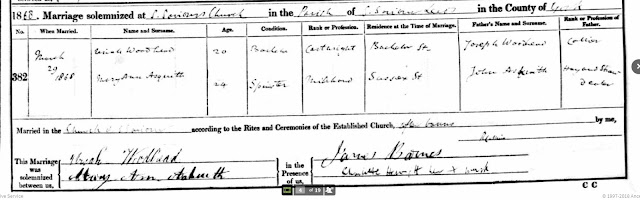 1868. Marriage solemnized at St. Saviour's Church in the Parish of St. Saviour Leeds in the County of York
No. When Married. Name and Surname. Age. Condition. Rank or Profession. Residence at the Time of Marriage. Father's Name and Surname. Rank or Profession of Father.
382 March 29 1868 Elijah Woodhead 20 Bachelor Cartwright Bachelor St. Joseph Woodhead Collier
Mary Ann Asquith 24 Spinster Millhand Sussex St John Asquith Hay and Straw Dealer
Married in the Church St. Saviour according to the Rites and Ceremonies of the Established Church, after Banns by me,
This Marriage was solemnized between us,
Elijah Woodhead
Mary Ann Asquith
in the Presence of us,
James Barnes
C C
4 of 19